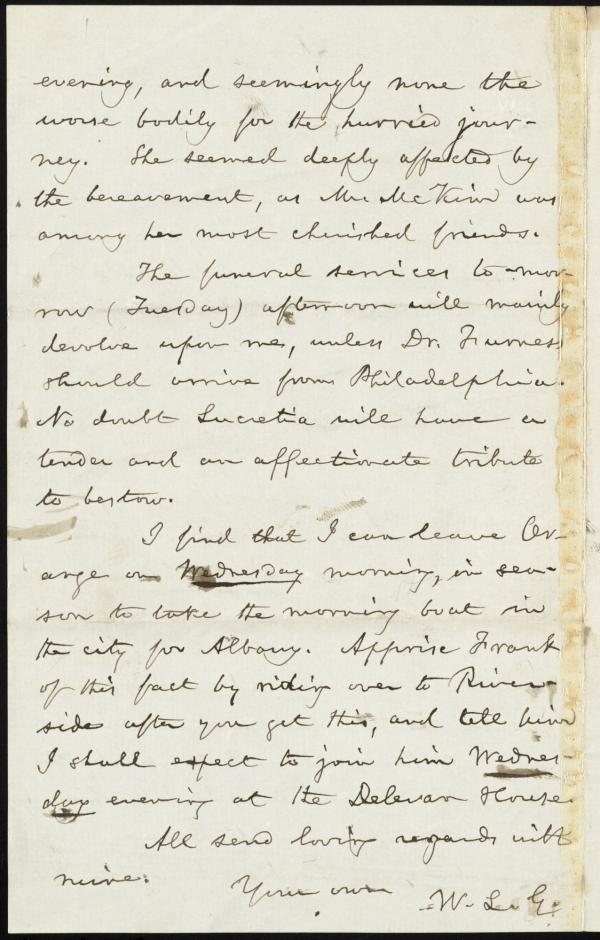 evening, and seemingly none the
worse bodily for the hurried jour-
ney. She seemed deeply affected by
the bereavement, as Mr. McKim was
among her most cherished friends.
The funeral services to-mor-
row (Tuesday) afternoon will mainly
devolve upon me, unless Dr. Furness
should arrive from Philadelphia.
No doubt Lucretia will have a
tender and an affectionate tribute
to bestow.
I find that I can leave Or-
ange on Wednesday morning, in sea-
son to take the morning boat in
the city for Albany. Apprise Frank
of this fact by riding over to River-
side after you get this, and tell him
I shall expect to join him Wednes-
day evening at the Delevan House.
All send loving regards with
mine.
Your own
W. L. G.